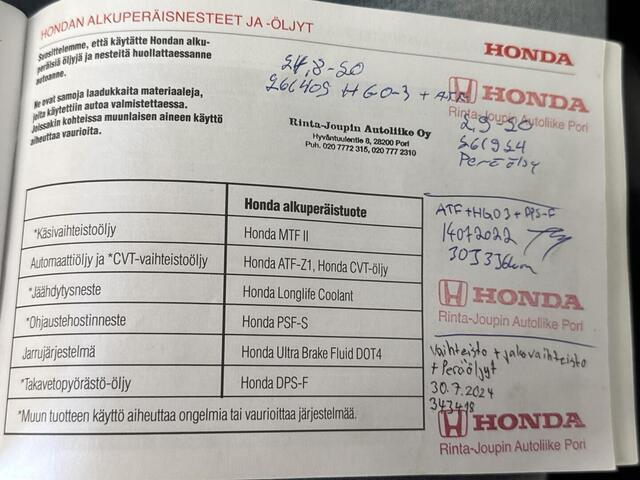 HONDAN ALKUPERÄISNESTEET JA -ÖLJYT
HONDA
Suosittelemme, että käytätte Hondan alku-
peräisiä öljyjä ja nesteitä huollattaessanne
autoanne.
Ne ovat samoja laadukkaita materiaaleja,
joita käytettiin autoa valmistettaessa.
Joissakin kohteissa muunlaisen aineen käyttö
aiheuttaa vaurioita.
24,8-20
261409 HGO-3 + ATF
Rinta-Joupin Autoliike Oy
Hyväntuulentie 8, 28200 Pori
Puh. 020 7772 315, 020 777 2310
HONDA
Rinta-Joupin Autoliike Pori
2,9-20
261954
Peräöljy
Honda alkuperäistuote
*Käsivaihteistoöljy Honda MTF II
Automaattiöljy ja *CVT-vaihteistoöljy Honda ATF-Z1, Honda CVT-öljy
*Jäähdytysneste Honda Longlife Coolant
*Ohjaustehostinneste Honda PSF-S
Jarrujärjestelmä Honda Ultra Brake Fluid DOT4
*Takavetopyörästö-öljy Honda DPS-F
*Muun tuotteen käyttö aiheuttaa ongelmia tai vaurioittaa järjestelmää.
ATF+HGO3+DPS-F
14072022
303336km
HONDA
Rinta-Joupin Autoliike Pori
Vaihteisto + jakovaihteisto
+ Peräöljyt
30.7.2024
343418
HONDA
Rinta-Joupin Autoliike Pori